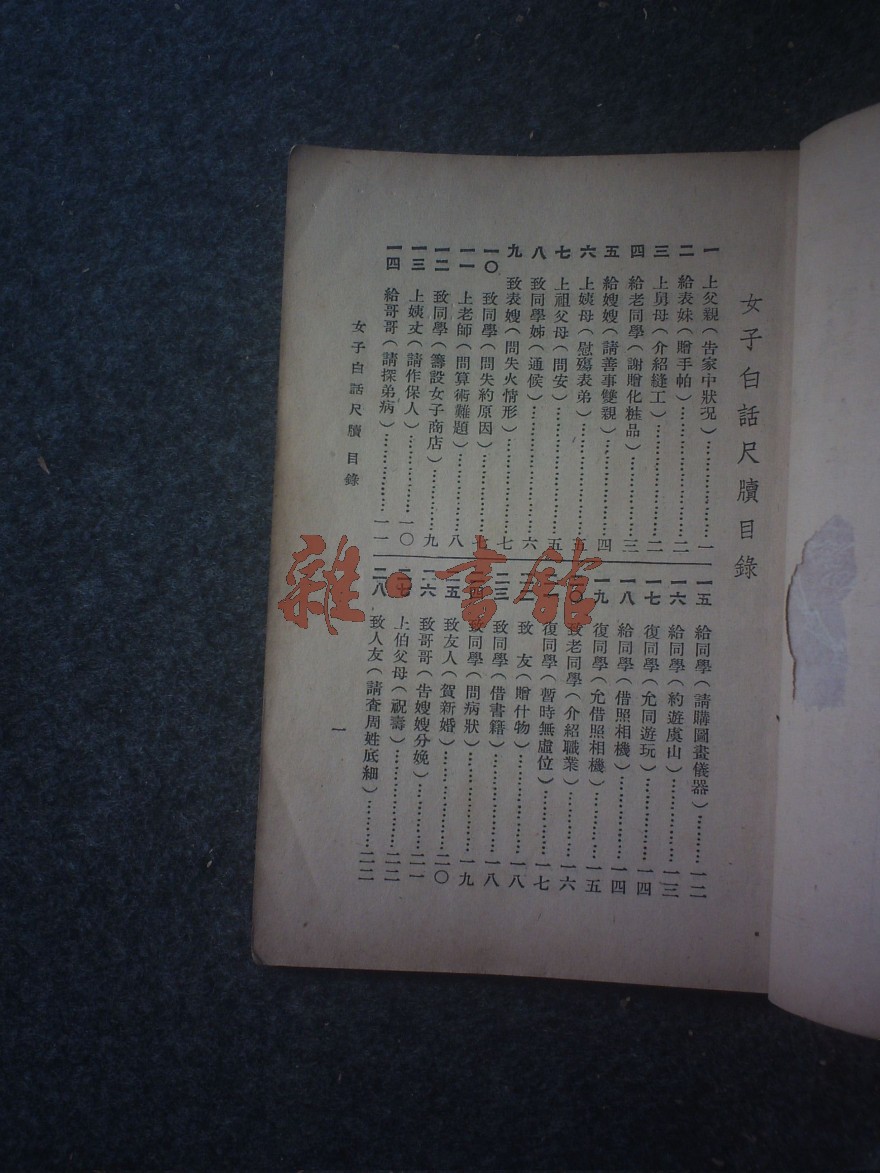 女子白話尺牘目錄
一 上父親（告家中狀況）………………一
二 給表妹（贈手帕）………………二
三 上舅母（介紹縫工）………………二
四 給老同學（謝贈化粧品）………………三
五 給嫂嫂（請善事雙親）………………四
六 上姨母（慰殤表弟）………………五
七 上祖父母（問安）………………五
八 致同學姊（通候）………………六
九 致表嫂（問失火情形）………………七
一〇 致同學（問失約原因）………………七
一一 上老師（問算術難題）………………八
一二 致同學（籌設女子商店）………………九
一三 上姨丈（請作保人）………………一〇
一四 給哥哥（請探弟病）………………一一
一五 給同學（請購圖畫儀器）………………一二
一六 給同學（約遊虞山）………………一三
一七 復同學（允同遊玩）………………一四
一八 給同學（借照相機）………………一四
一九 復同學（允借照相機）………………一五
二〇 致老同學（介紹職業）………………一六
二一 復同學（暫時無虛位）………………一七
二二 致友（贈什物）………………一八
二三 致同學（借書籍）………………一八
二四 致同學（問病狀）………………一九
二五 致友人（賀新婚）………………二〇
二六 致哥哥（告嫂嫂分娩）………………二一
二七 上伯父母（祝壽）………………二二
二八 致人友（請查周姓底細）………………二二
女子白話尺牘 目錄
一
雜·書館